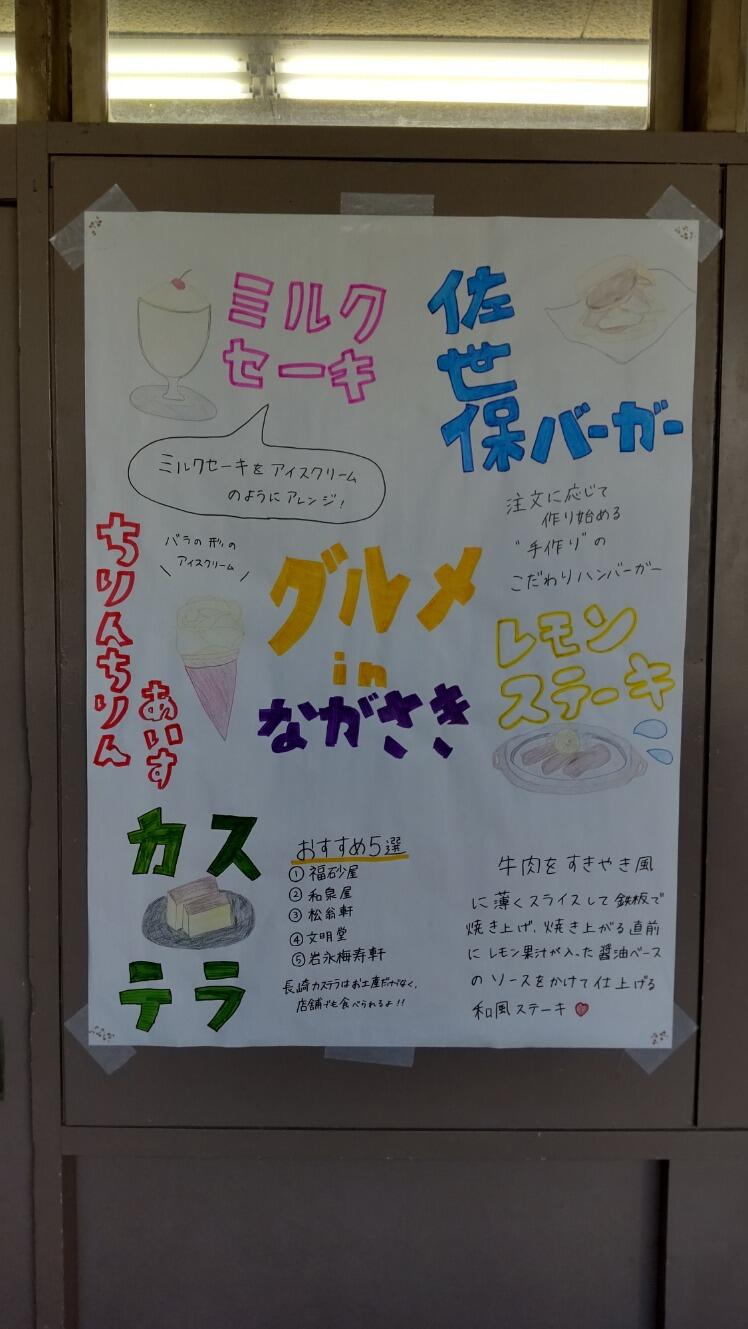 ミルク
セーキ
ミルクセーキをアイスクリーム
のようにアレンジ!
佐
世
保バーガー
注文に応じて
作り始める
"手作り"の
こだわりハンバーガー
ちりんちりん
あいす
バラの形の
アイスクリーム
グルメ
in
ながさき
レモン
ステーキ
牛肉をすきやき風
に薄くスライスして鉄板で
焼き上げ、焼き上がる直前
にレモン果汁が入った醤油ベース
のソースをかけて仕上げる
和風ステーキ
カス
テラ
おすすめ5選
① 福砂屋
② 和泉屋
③ 松翁軒
④ 文明堂
⑤ 岩永梅寿軒
長崎カステラはお土産だけでなく、
店舗でも食べられるよ!!